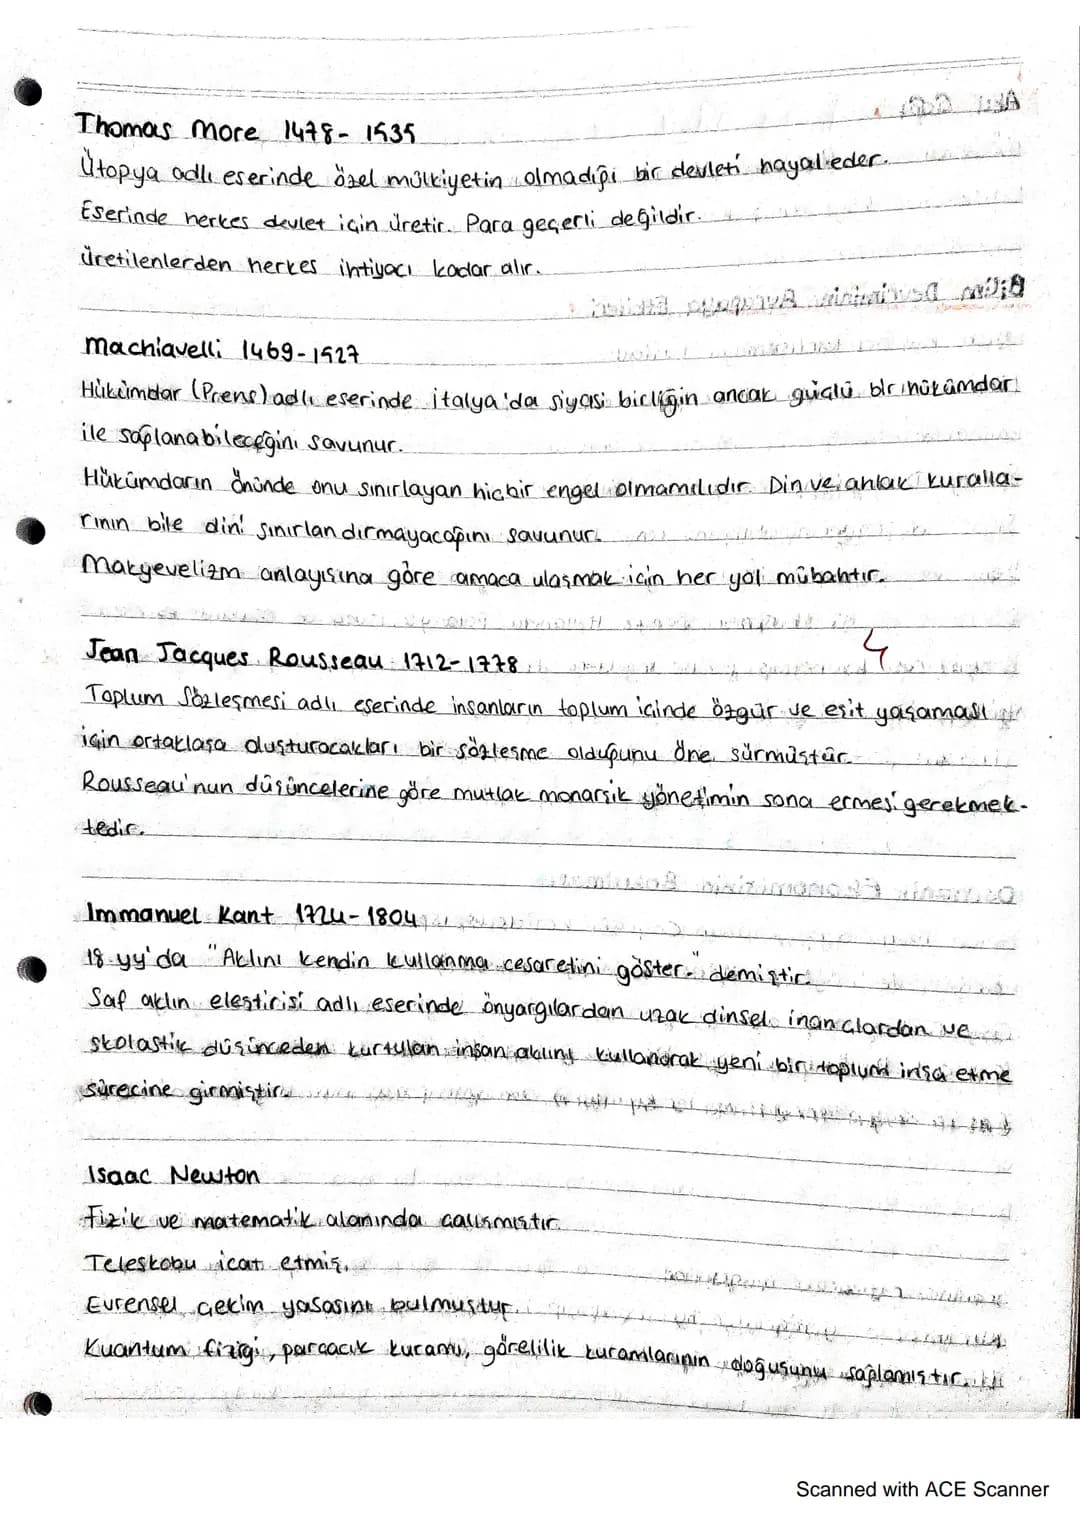 Thomas More 1478-1535
Ütopya adlı eserinde özel mülkiyetin olmadığı bir devleti hayal eder.
Eserinde herkes devlet için üretir. Para geçerli değildir.
üretilenlerden herkes ihtiyacı kadar alır.
Bilim Devriminin Avrupaya Etkileri
Machiavelli 1469-1527
Hükümdar (Prens) adlı eserinde italya'da siyasi birliğin ancak güçlü bir hükümdar
ile sağlanabileceğini savunur.
Hükümdarın önünde onu sınırlayan hiçbir engel olmamalıdır. Din ve ahlak kuralla-
rının bile dini sınırlandırmayacağını savunur.
Makyevelizm anlayışına göre amaca ulaşmak için her yol mübahtır.
4
Jean Jacques Rousseau 1712-1778
Toplum Sözleşmesi adlı eserinde insanların toplum içinde özgür ve eşit yaşaması
için ortaklaşa oluşturacakları bir sözleşme olduğunu öne sürmüştür.
Rousseau'nun düşüncelerine göre mutlak monarşik yönetimin sona ermesi gerekmek-
tedir.
Immanuel Kant 1724-1804
18.yy'da "Aklını kendin kullanma cesaretini göster." demiştir.
Saf aklın eleştirisi adlı eserinde önyargılardan uzak dinsel inançlardan ve
skolastik düşünceden kurtulan insan aklını kullanarak yeni bir toplum inşa etme
sürecine girmiştir.
Isaac Newton
Fizik ve matematik alanında çalışmıştır.
Teleskobu icat etmiş.
Evrensel çekim yasasını bulmuştur.
Kuantum fiziği, parçacık kuramı, görelilik kuramlarının doğuşunu sağlamıştır.
Scanned with ACE Scanner